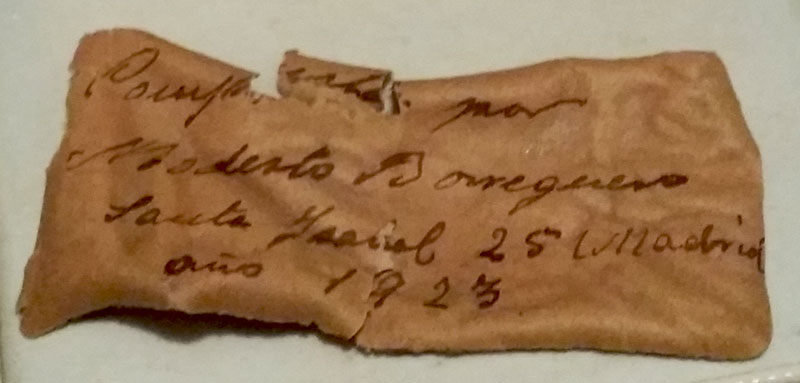 por
Modesto Borreguero
Santa Ysabel 25 Madrid
año 1923